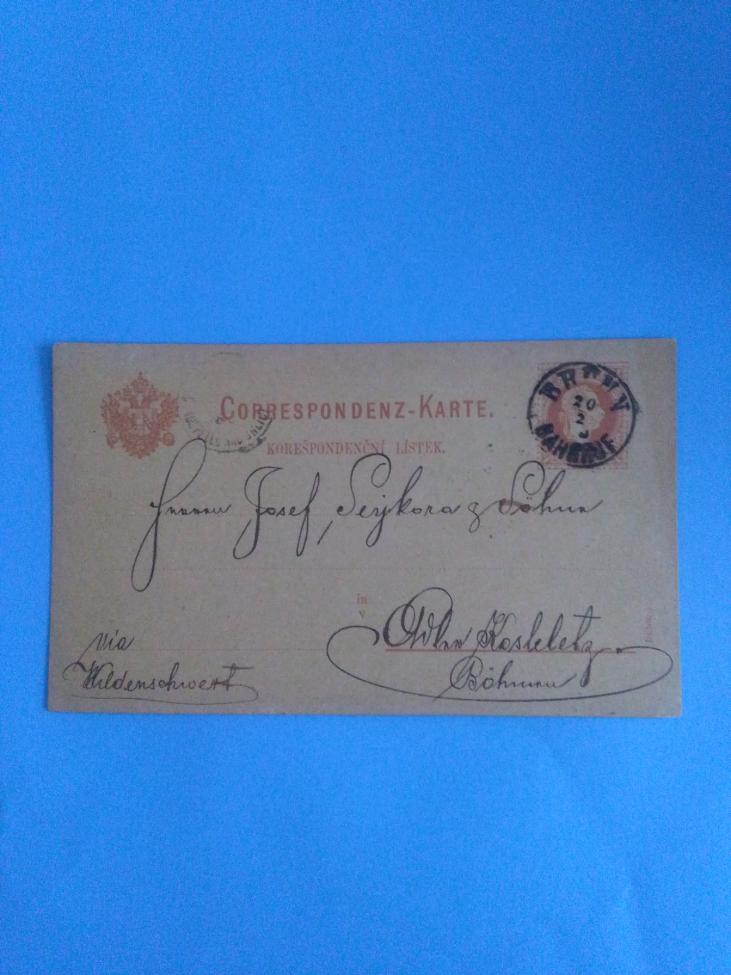 CORRESPONDENZ-KARTE.
KORESPONDENČNÍ LÍSTEK.
BRÜNN
20
2
BAHNHOF
Herren Josef Sejkora & Söhne
in
v
Adler Kosteletz
Böhmen
via
Wildenschwert